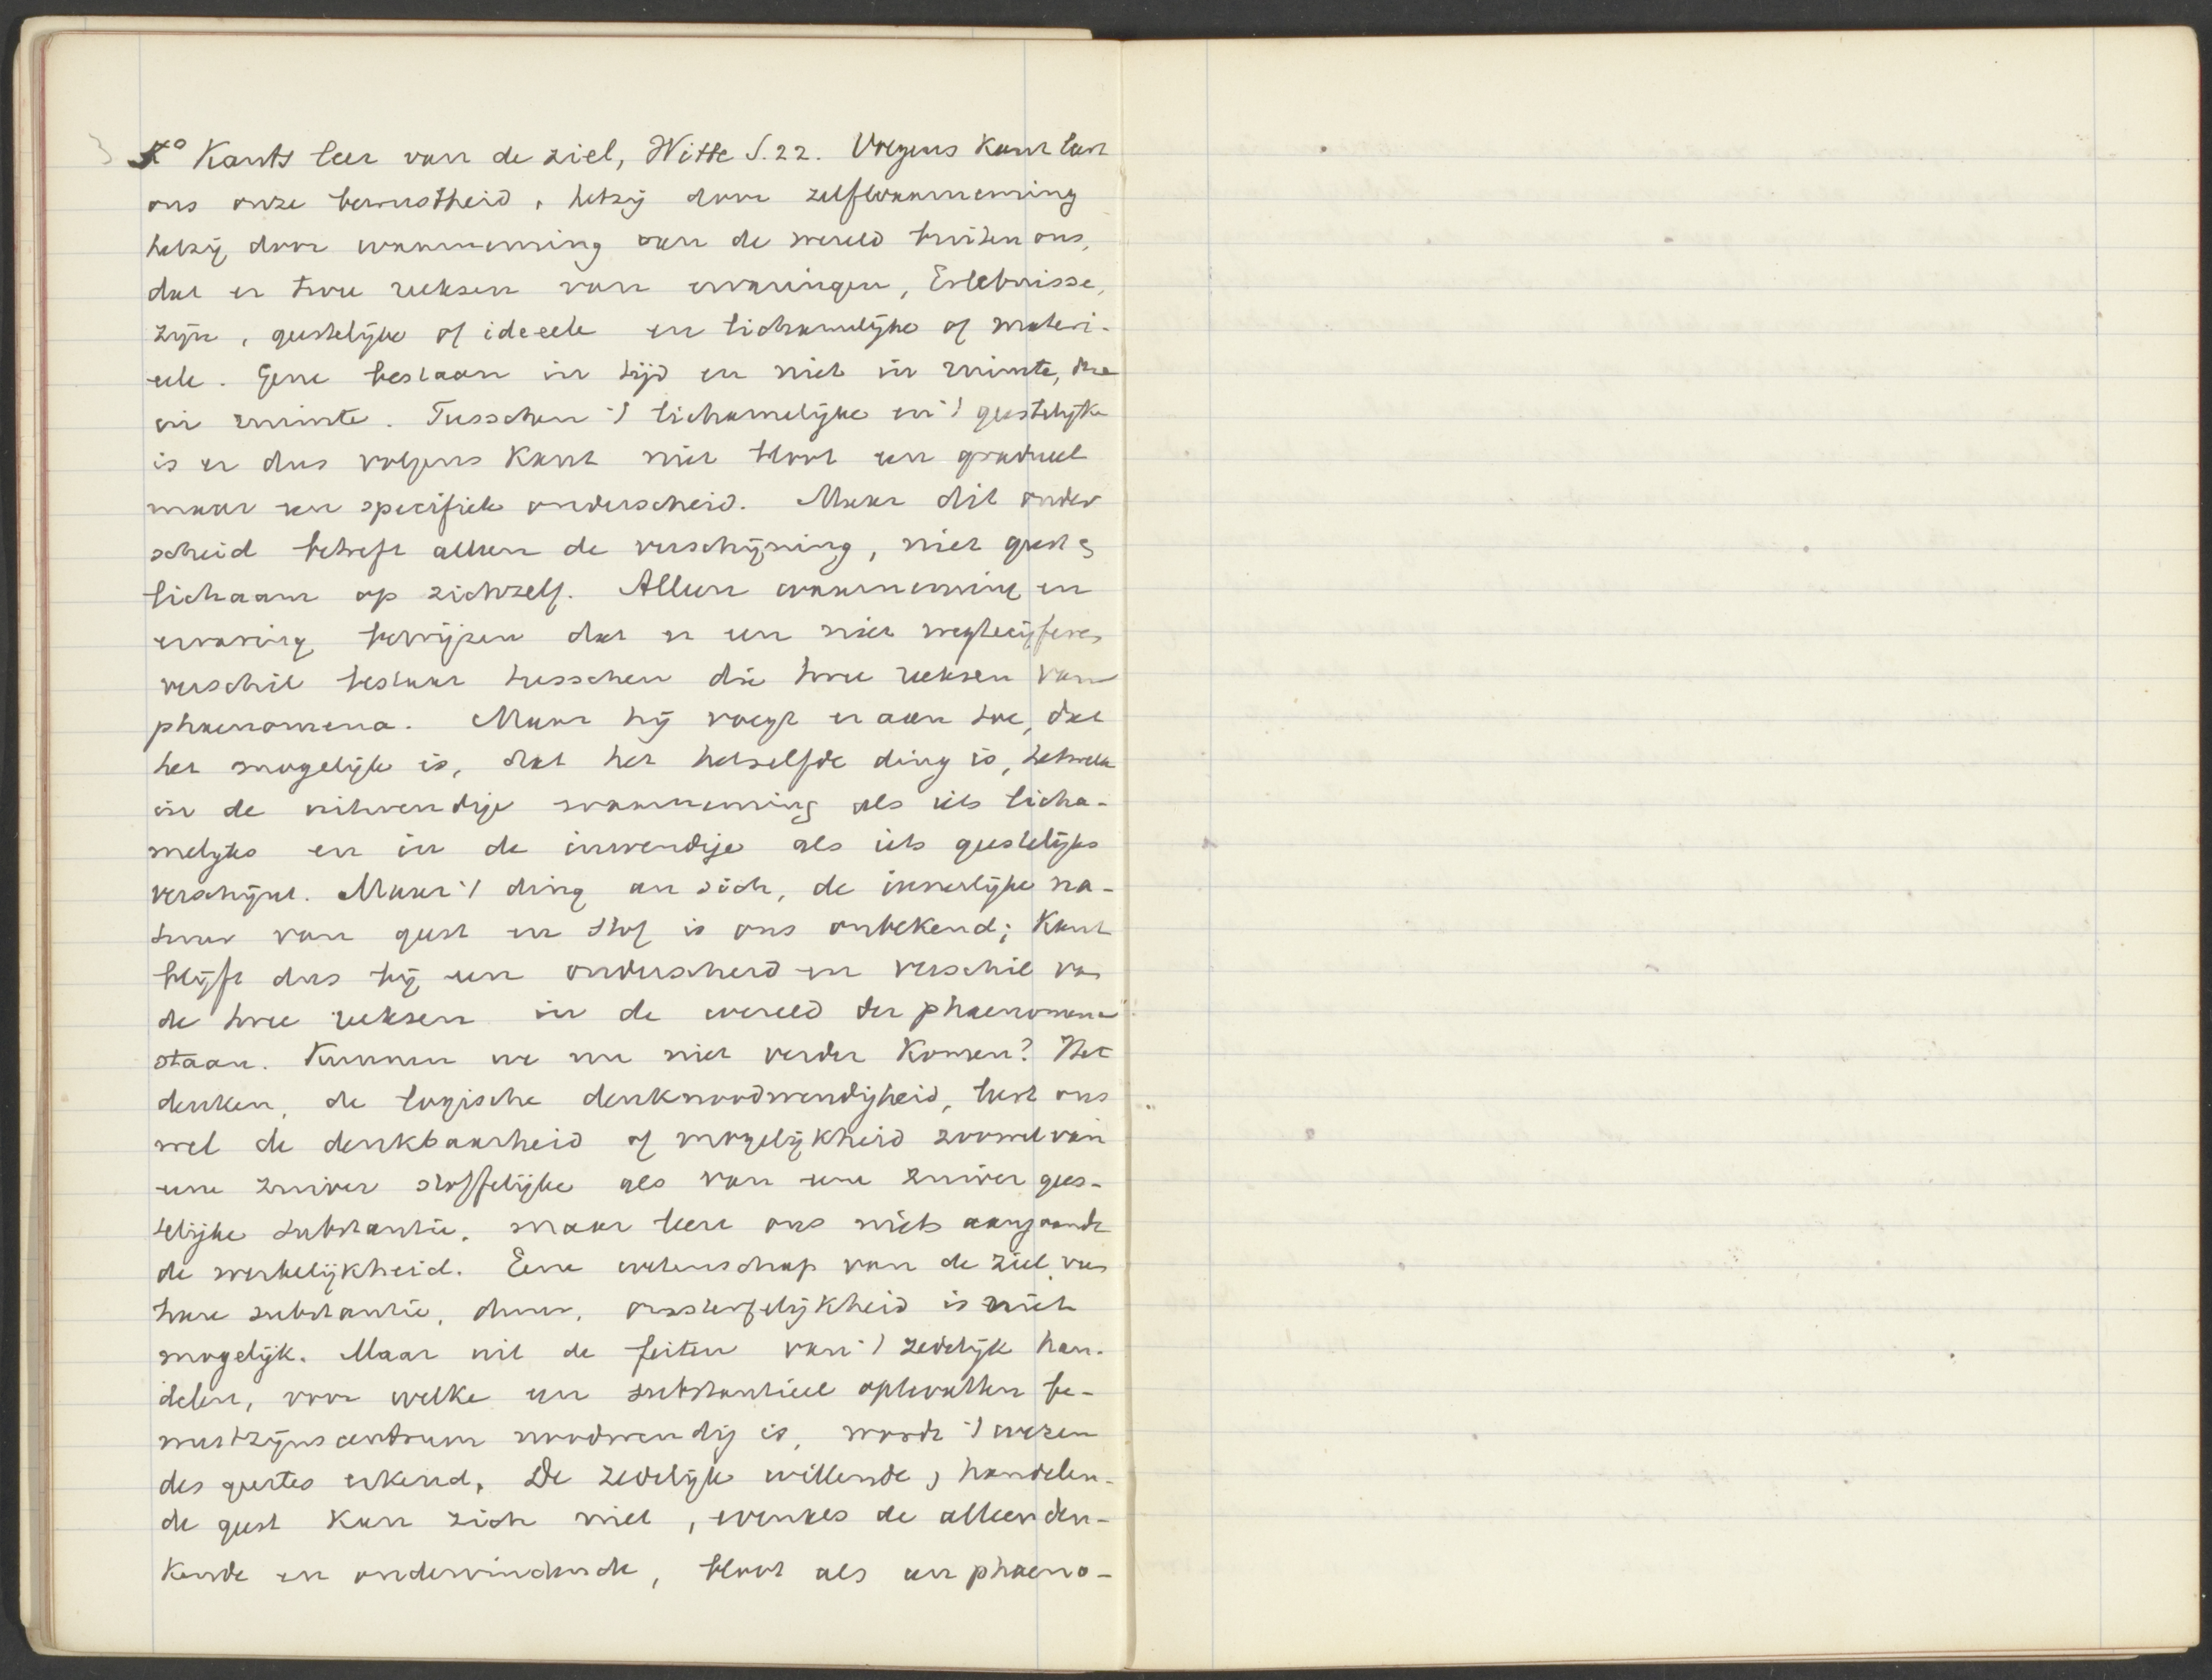 3° Kants leer van de ziel, Witte S. 22. Volgens Kant leert
ons onze bewustheid, hetzij door zelfwaarneming
hetzij door waarneming van de wereld buiten ons,
dat er twee reeksen van ervaringen, Erlebnisse,
zijn, geestelijke of ideeele en lichamelijke of materi-
eele. Gene bestaan in tijd en niet in ruimte, deze
in ruimte. Tusschen 't lichamelijke en 't geestelijke
is er dus volgens Kant niet bloot een gradueel
maar een specifiek onderscheid. Maar dit onder
scheid betreft alleen de verschijning, niet geest &
lichaam op zichzelf. Alleen waarneming en
ervaring bewijzen dat er een niet wegtecijferen
verschil bestaat tusschen die twee reeksen van
phaenomena. Maar hij voegt er aan toe, dat
het mogelijk is, dat het hetzelfde ding is, hetwelk
in de uitwendige waarneming als iets licha-
melijks en in de inwendige als iets geestelijks
verschijnt. Maar 't ding an sich, de innerlijke na-
tuur van geest en stof is ons onbekend; Kant
blijft dus bij een onderscheid en verschil van
de twee reeksen in de wereld der phaenomena
staan. Kunnen we nu niet verder komen? Het
denken, de logische denknoodwendigheid, leert ons
wel de denkbaarheid of mogelijkheid zoowel van
eene zuiver stoffelijke als van eene zuiver gees-
telijke substantie, maar leert ons niets aangaande
de werkelijkheid. Eene wetenschap van de ziel, van
hare substantie, duur, onsterfelijkheid is niet
mogelijk. Maar uit de feiten van 't zedelijk han-
delen, voor welke een substantieel optevatten be-
wustzijnscentrum noodwendig is, wordt 't wezen
des geestes erkend. De zedelijk willende, handelen-
de geest kan zich niet, evenals de alleen den-
kende en ondervindende, bloot als een phaeno-